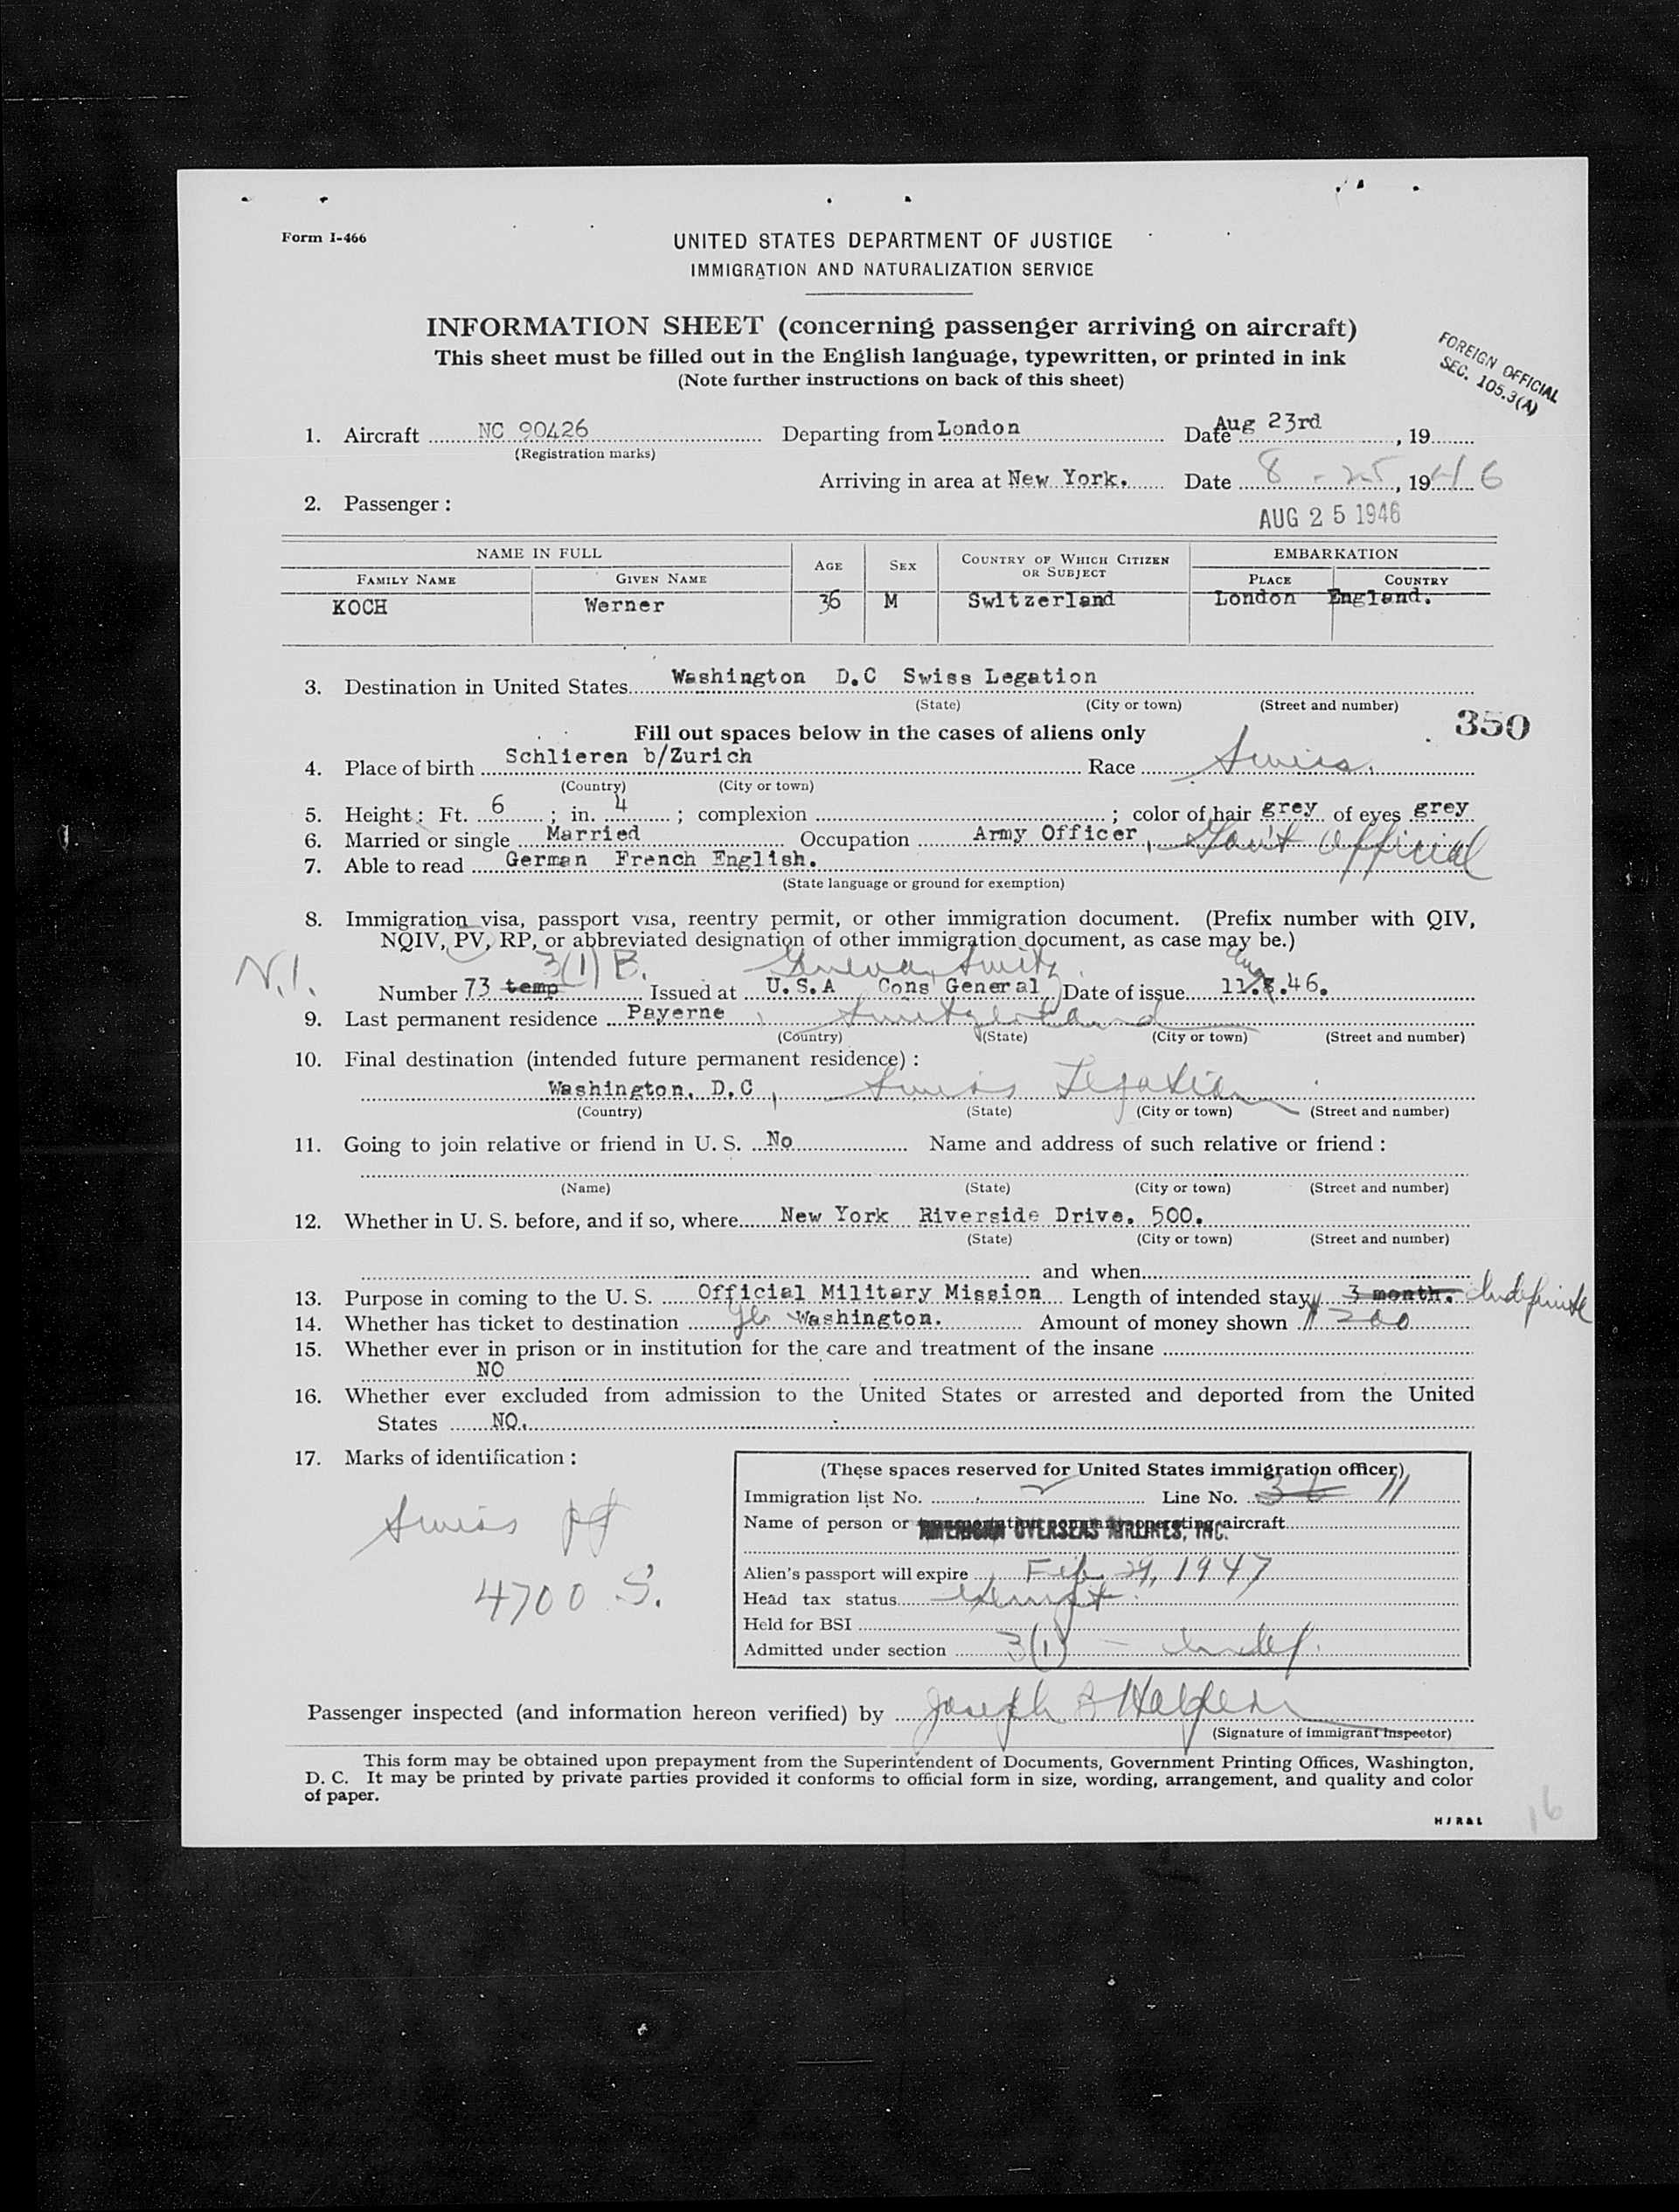 Form I-466
UNITED STATES DEPARTMENT OF JUSTICE
IMMIGRATION AND NATURALIZATION SERVICE
INFORMATION SHEET (concerning passenger arriving on aircraft)
This sheet must be filled out in the English language, typewritten, or printed in ink
(Note further instructions on back of this sheet)
FOREIGN OFFICIAL
SEC. 105.3(A)
1. Aircraft NC 90426 Departing from London Date Aug 23rd, 19
(Registration marks)
Arriving in area at New York. Date 8 - 25, 1946
2. Passenger:
AUG 25 1946
NAME IN FULL AGE SEX COUNTRY OF WHICH CITIZEN OR SUBJECT EMBARKATION
FAMILY NAME GIVEN NAME PLACE COUNTRY
KOCH Werner 36 M Switzerland London England.
3. Destination in United States Washington D.C Swiss Legation
(State) (City or town) (Street and number)
350
Fill out spaces below in the cases of aliens only
4. Place of birth Schlieren b/Zurich Race Swiss.
(Country) (City or town)
5. Height: Ft. 6; in. 4; complexion; color of hair grey of eyes grey
6. Married or single Married Occupation Army Officer, Gov't Official
7. Able to read German French English.
(State language or ground for exemption)
8. Immigration visa, passport visa, reentry permit, or other immigration document. (Prefix number with QIV,
NQIV, PV, RP, or abbreviated designation of other immigration document, as case may be.)
N.I. 3(1) B. Geneva, Switz. Aug
Number 73 temp Issued at U.S.A Cons General Date of issue 11.8.46.
9. Last permanent residence Payerne, Switzerland
(Country) (State) (City or town) (Street and number)
10. Final destination (intended future permanent residence):
Washington. D.C, Swiss Legation
(Country) (State) (City or town) (Street and number)
11. Going to join relative or friend in U. S. No Name and address of such relative or friend:
(Name) (State) (City or town) (Street and number)
12. Whether in U. S. before, and if so, where New York Riverside Drive. 500.
(State) (City or town) (Street and number)
and when
13. Purpose in coming to the U. S. Official Military Mission Length of intended stay 3 month. Indefinite
14. Whether has ticket to destination Yes Washington. Amount of money shown $200
15. Whether ever in prison or in institution for the care and treatment of the insane
NO
16. Whether ever excluded from admission to the United States or arrested and deported from the United
States NO.
17. Marks of identification:
Swiss pp
4700 S.
(These spaces reserved for United States immigration officer)
Immigration list No. Line No. 11
Name of person or transportation company operating aircraft
AMERICAN OVERSEAS AIRLINES, INC.
Alien's passport will expire Feb 29, 1947
Head tax status exempt
Held for BSI
Admitted under section 3(1) - Indef.
Passenger inspected (and information hereon verified) by Joseph B Halpern
(Signature of immigrant inspector)
This form may be obtained upon prepayment from the Superintendent of Documents, Government Printing Offices, Washington,
D. C. It may be printed by private parties provided it conforms to official form in size, wording, arrangement, and quality and color
of paper.
16